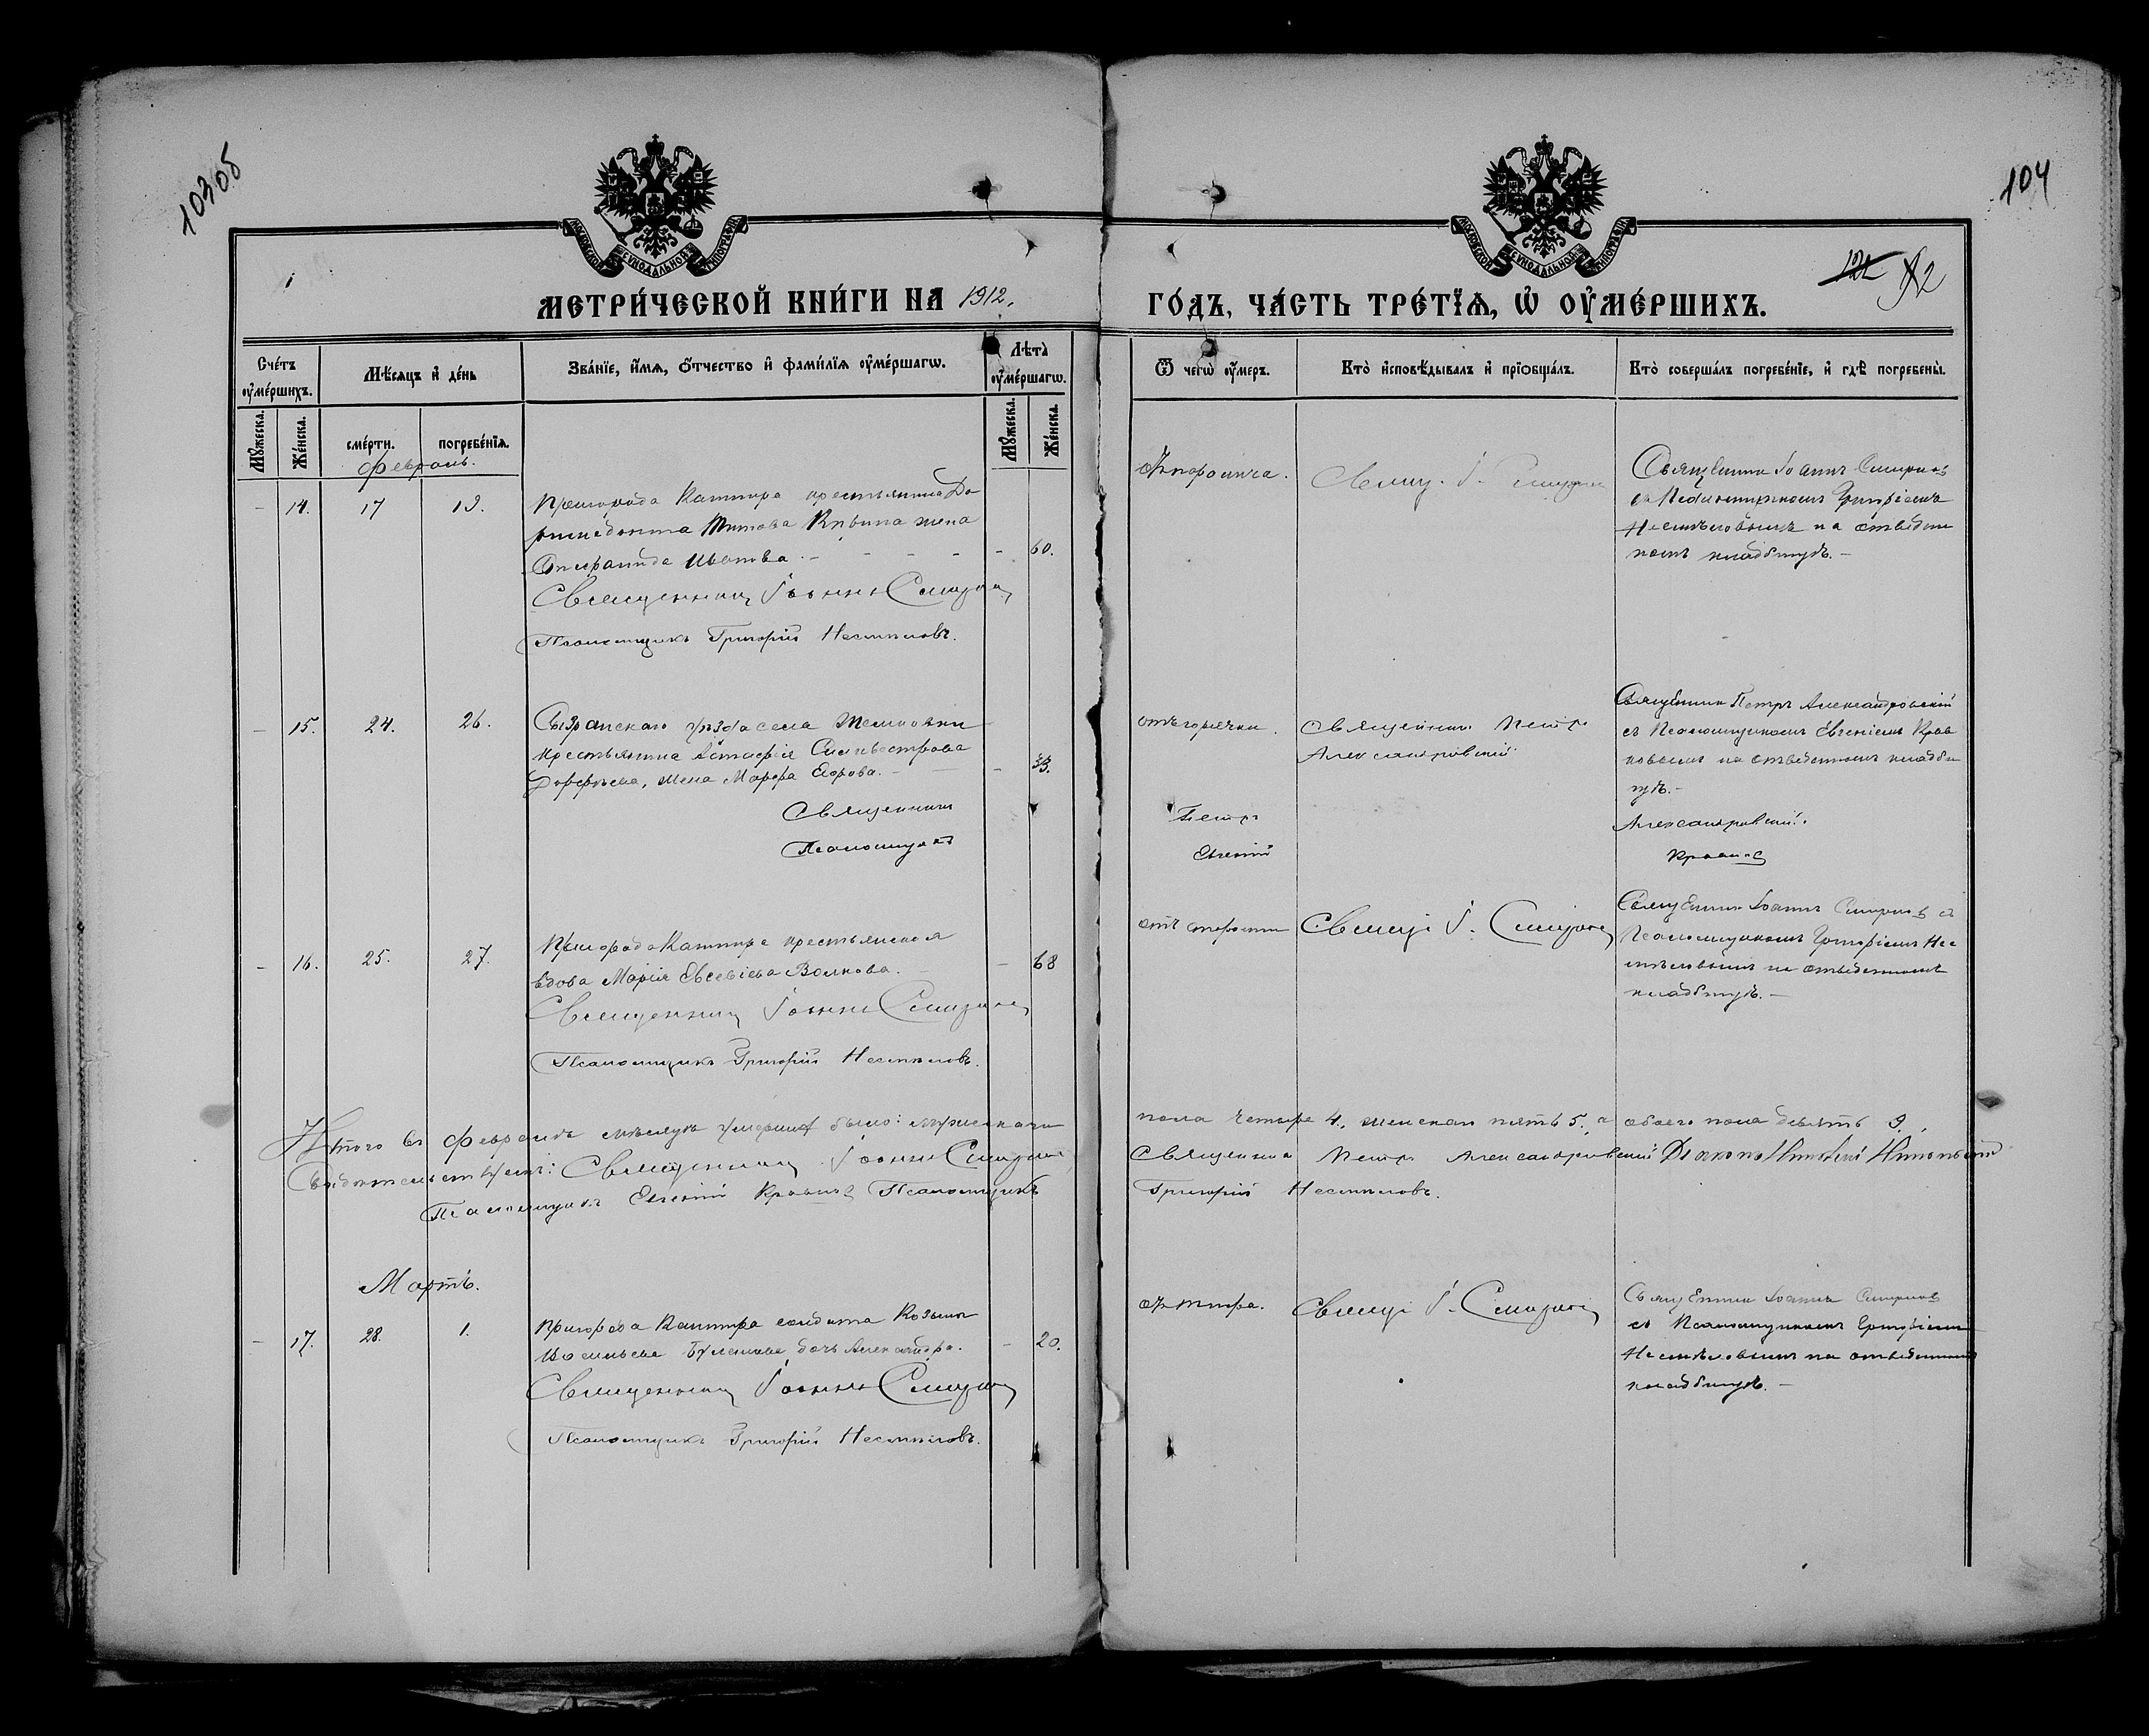 103об
104
МЕТРИ́ЧЕСКОЙ КНИ́ГИ НА 1912.
ГО́ДЪ, ЧА́СТЬ ТРЕ́ТЇѦ, Ѡ҆ ОУ҆МЕ́РШИХЪ.
122 82
Сче́тъ оу҆ме́ршихъ.
Мѣ́сяцъ и҆ де́нь
Зва́нїе, и҆́мѧ, ѻ҆́тчество и҆ фами́лїѧ оу҆ме́ршагѡ.
Лѣ́та оу҆ме́ршагѡ.
Ѿ чегѡ̀ оу҆́меръ.
Кто̀ и҆сповѣ́дывалъ и҆ прїѡбща́лъ.
Кто̀ соверша́лъ погребе́нїе, и҆ гдѣ̀ погребены̀.
Мꙋ́жеска.
Же́нска.
сме́рти.
погребе́нїѧ.
Мꙋ́жеска.
Же́нска.
Февраль.
14. 17 19.
Пригорода Кашпира крестьянина До
римедонта Титова Кривина жена
Иванова. 60.
Священникъ Іоаннъ Смирновъ
Псаломщикъ Григорій Несмѣловъ.
Отъ паралича.
Священ. І. Смирновъ
Священникъ Іоаннъ Смирновъ
съ Псаломщикомъ Григоріемъ
Несмѣловымъ на отведен
номъ кладбищѣ.
15. 24. 26.
Сызранскаго уѣзда села
крестьянина Астафія Сильвестрова
Дорофѣева, жена Марфа Егорова. 33.
Священникъ
Псаломщикъ
отъ горячки.
Священникъ Петръ
Александровскій
Священникъ Петръ Александровскій
съ Псаломщикомъ Евгеніемъ Крав
ковымъ на отведенномъ кладби
щѣ.
Петръ Александровскій.
Евгеній
16. 25. 27.
Пригорода Кашпира крестьянская
вдова Марія Евсевіева Волкова. 68
Священникъ Іоаннъ Смирновъ
Псаломщикъ Григорій Несмѣловъ.
отъ старости
Священ. І. Смирновъ
Священникъ Іоаннъ Смирновъ съ
Псаломщикомъ Григоріемъ Нес
мѣловымъ на отведенномъ
кладбищѣ.
Итого въ Февралѣ мѣсяцѣ умершихъ было: мужескаго пола четыре 4, женскаго пять 5, а обоего пола девять 9.
Священникъ Іоаннъ Смирновъ Священникъ Петръ Александровскій
Псаломщикъ Евгеній Псаломщикъ Григорій Несмѣловъ.
Мартъ.
17. 28. 1.
Пригорода Кашпира солдата Козьмы
Васильева дочь Александра. 20.
Священникъ Іоаннъ Смирновъ
Псаломщикъ Григорій Несмѣловъ.
отъ тифа.
Священ. І. Смирновъ
Священникъ Іоаннъ Смирновъ
съ Псаломщикомъ Григоріемъ
Несмѣловымъ на отведенномъ
кладбищѣ.